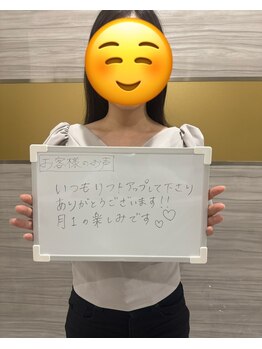 お客様のお声
いつもリフトアップして下さり
ありがとうございます!!
月1の楽しみです♡♡